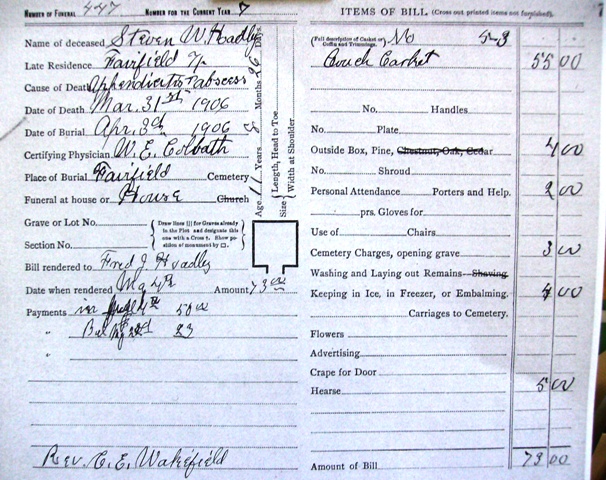 NUMBER OF FUNERAL 447 NUMBER FOR THE CURRENT YEAR 7
Name of deceased Steven W. Hoadly
Late Residence Fairfield Tp.
Cause of Death Appendicitis abscess
Date of Death Mar. 31st 1906
Date of Burial Apr. 3d 1906
Certifying Physician W. E. Colbath
Place of Burial Fairfield Cemetery
Funeral at house or House Church
Age 11 Years 8 Months 26 Days
Size Length, Head to Toe
Width at Shoulder
Grave or Lot No.
Section No.
Draw lines ||| for Graves already in the Plot and designate this one with a Cross †. Show position of monument by □.
Bill rendered to Fred J. Hoadley
Date when rendered Amount, 73 00
Payments 50 00
" Bal 23
"
Rev. C. E. Wakefield
ITEMS OF BILL (Cross out printed items not furnished).
(Full description of Casket or Coffin and Trimmings.) No 5-3
Couch Casket 55 00
No. Handles
No. Plate
Outside Box, Pine, Chestnut, Oak, Cedar 4 00
No. Shroud
Personal Attendance Porters and Help. 2 00
prs. Gloves for
Use of Chairs
Cemetery Charges, opening grave 3 00
Washing and Laying out Remains—Shaving
Keeping in Ice, in Freezer, or Embalming. 4 00
Carriages to Cemetery.
Flowers
Advertising
Crape for Door
Hearse 5 00
Amount of Bill 73 00